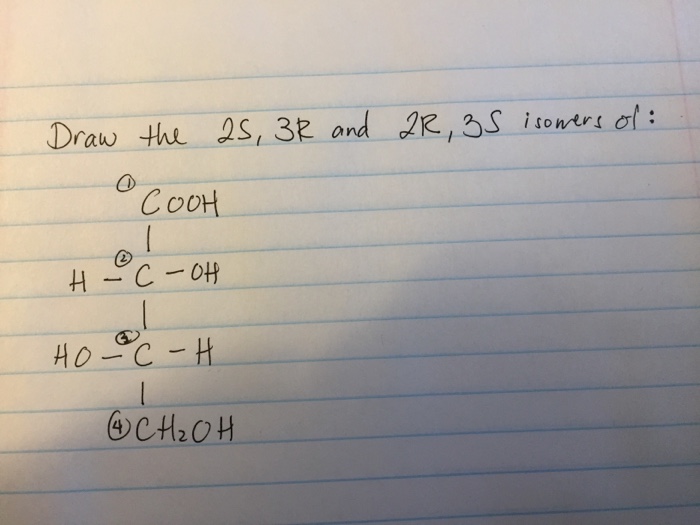 Draw the 2S, 3R and 2R, 3S isomers of:
① COOH
|
H - ② C - OH
|
HO - ③ C - H
|
④ CH₂OH